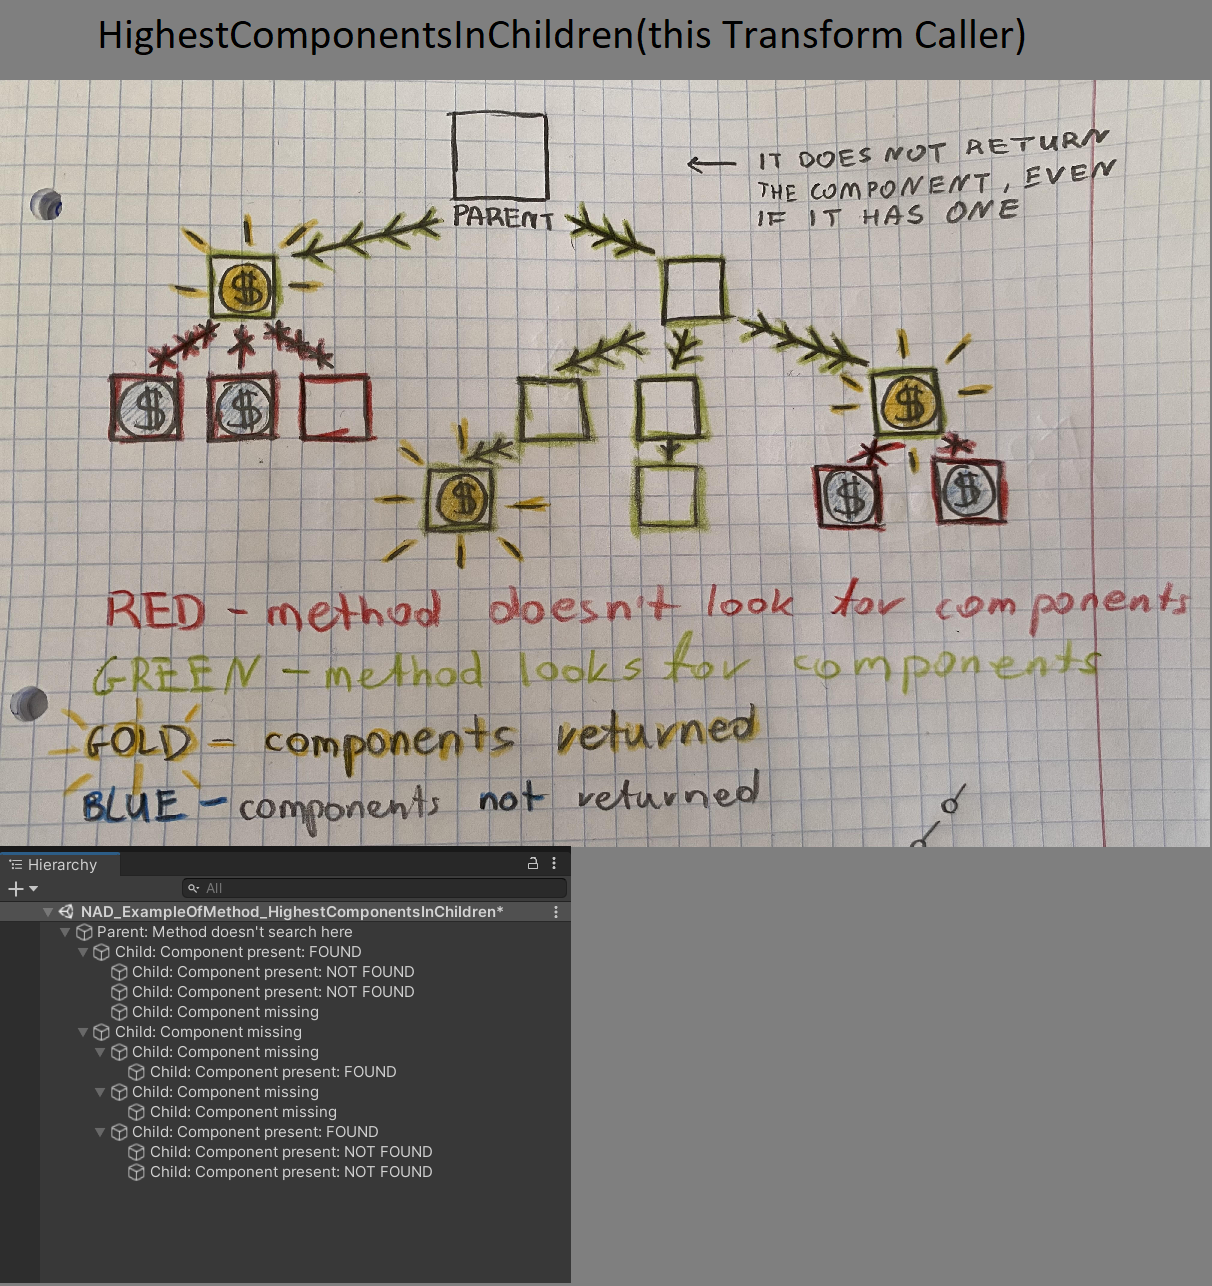 HighestComponentsInChildren(this Transform Caller)
PARENT
← IT DOES NOT RETURN
THE COMPONENT, EVEN
IF IT HAS ONE
$
$
$
$
$
$
$
RED - method doesn't look for components
GREEN - method looks for components
GOLD - components returned
BLUE - components not returned
Hierarchy
All
NAD_ExampleOfMethod_HighestComponentsInChildren*
Parent: Method doesn't search here
Child: Component present: FOUND
Child: Component present: NOT FOUND
Child: Component present: NOT FOUND
Child: Component missing
Child: Component missing
Child: Component missing
Child: Component present: FOUND
Child: Component missing
Child: Component missing
Child: Component present: FOUND
Child: Component present: NOT FOUND
Child: Component present: NOT FOUND